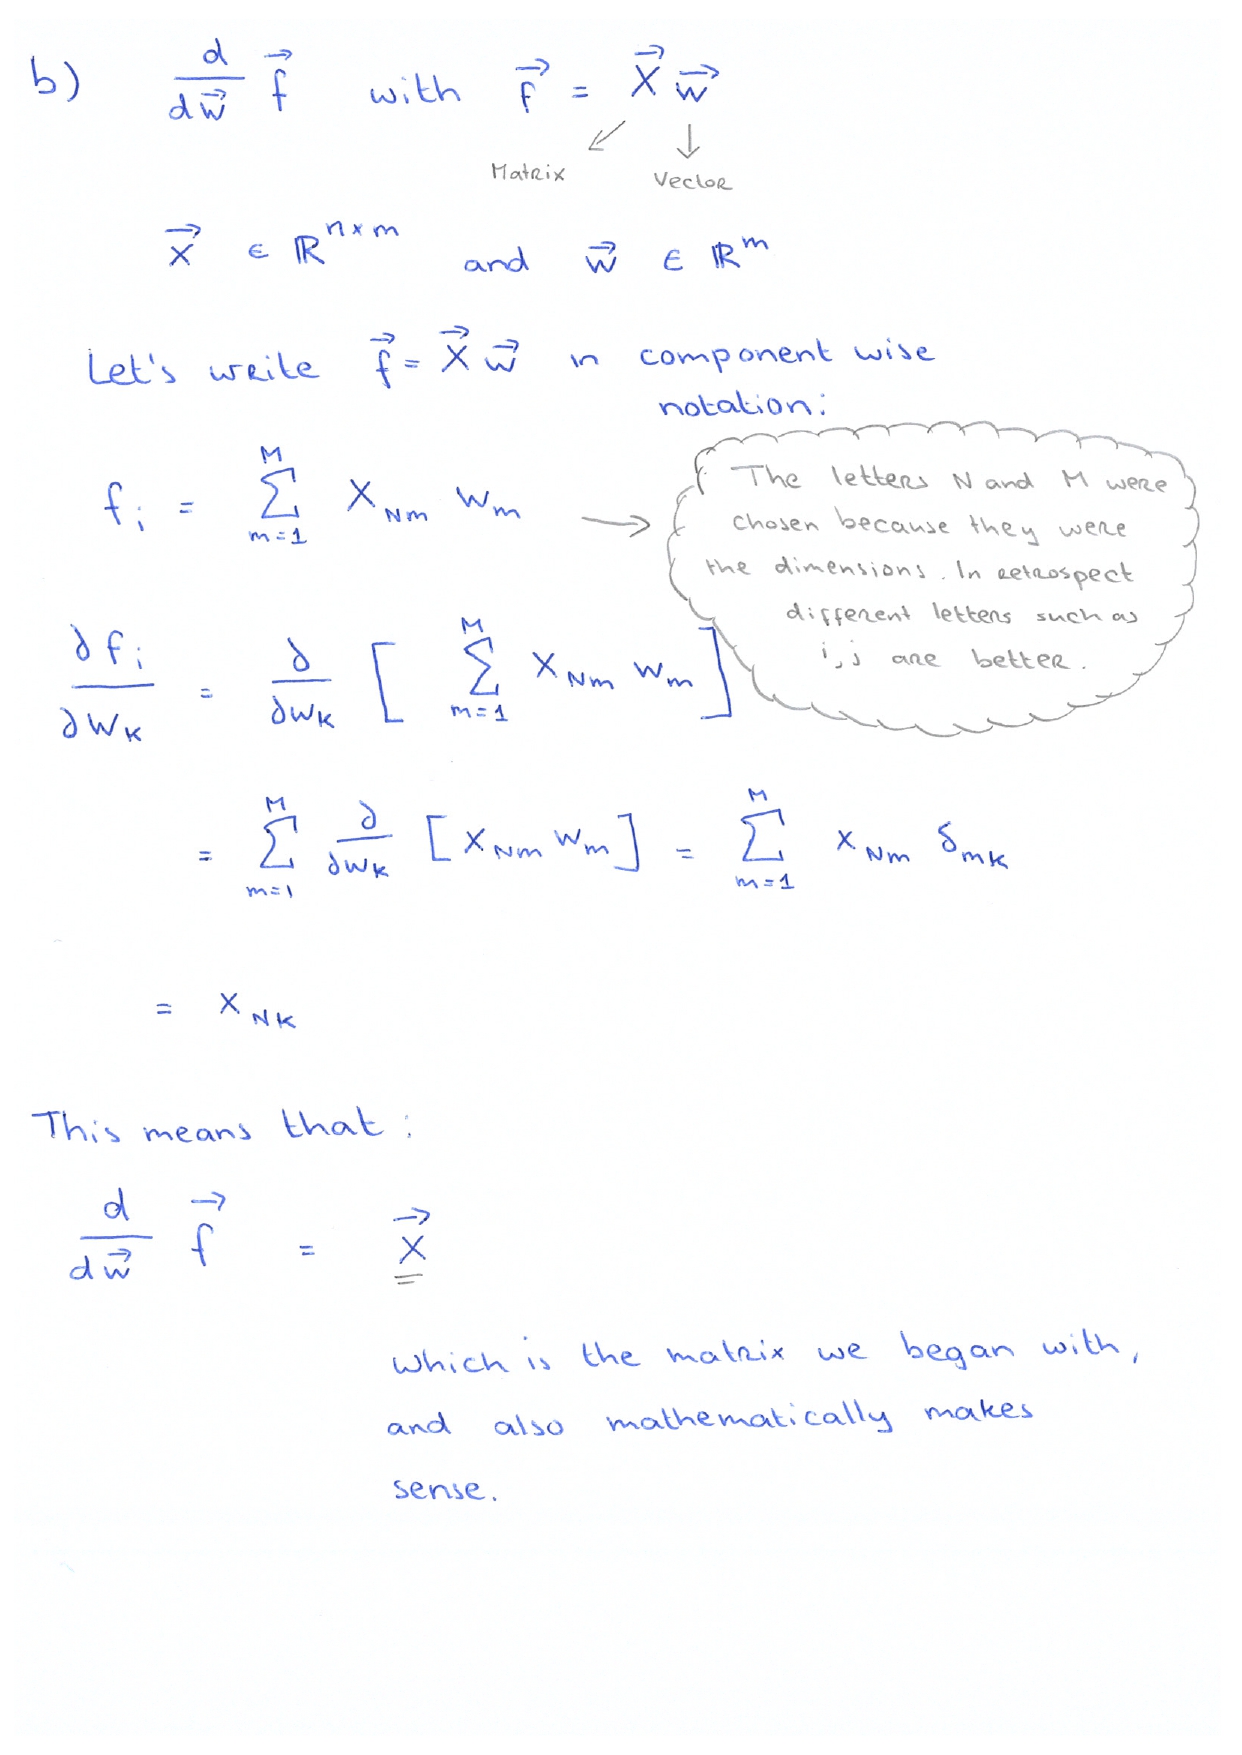 b) d/dw⃗ f⃗ with f⃗ = X⃗ w⃗
Matrix Vector
X⃗ ∈ ℝ^{n×m} and w⃗ ∈ ℝ^m
Let's write f⃗ = X⃗ w⃗ in component wise
notation:
f_i = ∑_{m=1}^{M} X_{Nm} w_m →
The letters N and M were
chosen because they were
the dimensions. In retrospect
different letters such as
i, j are better.
∂f_i/∂w_k = ∂/∂w_k [ ∑_{m=1}^{M} X_{Nm} w_m ]
= ∑_{m=1}^{M} ∂/∂w_k [X_{Nm} w_m] = ∑_{m=1}^{M} X_{Nm} δ_{mk}
= X_{Nk}
This means that:
d/dw⃗ f⃗ = X⃗
which is the matrix we began with,
and also mathematically makes
sense.